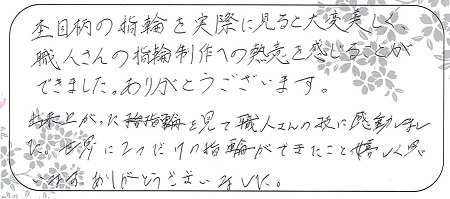 杢目柄の指輪を実際に見ると大変美しく、
職人さんの指輪制作への熱意を感じることが
できました。ありがとうございます。
出来上がった指輪を見て職人さんの技に感動しまし
た。世界に2つだけの指輪ができたこと嬉しく思
います。ありがとうございました。